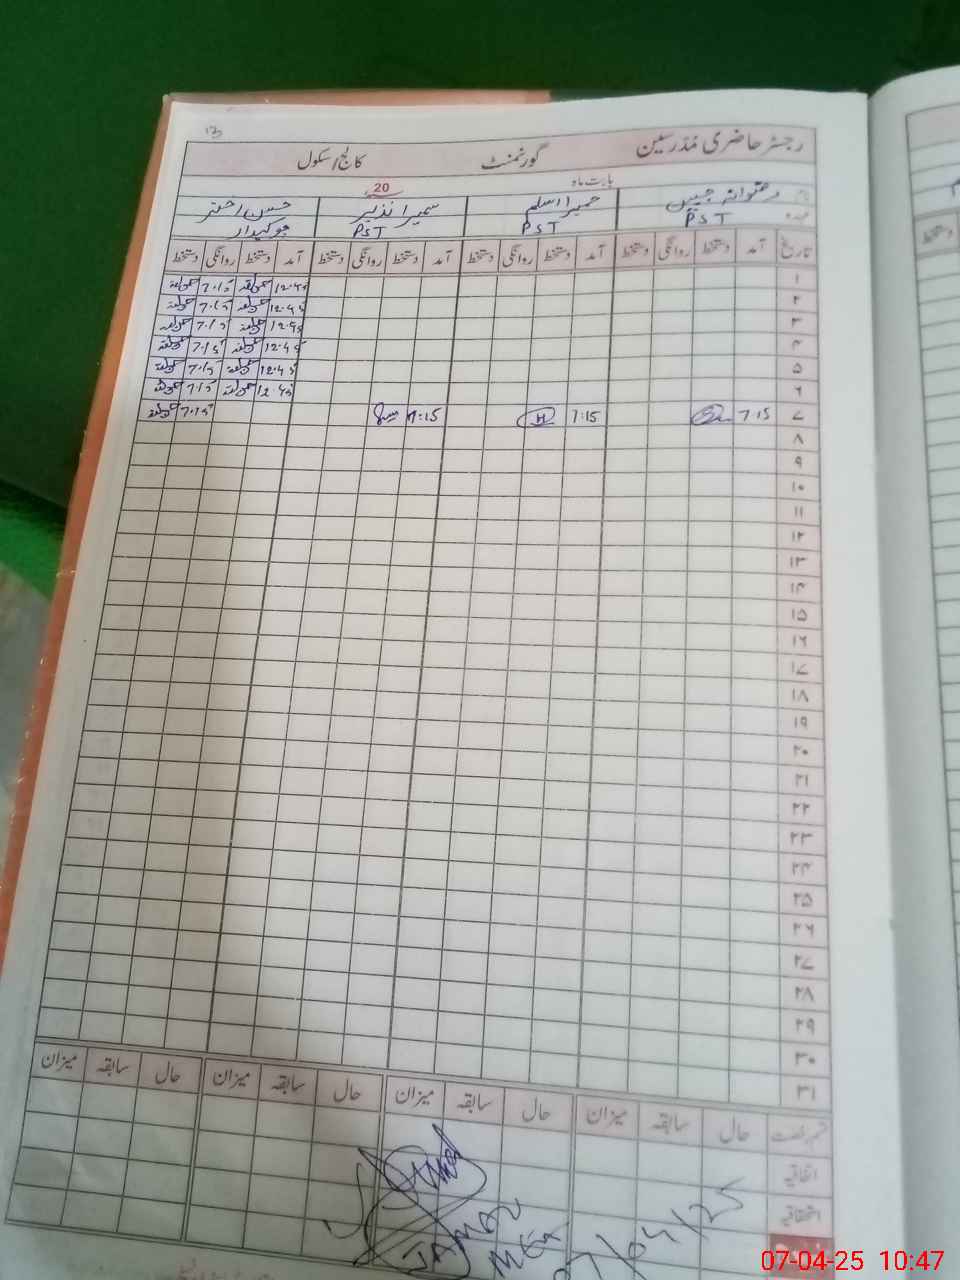 رجسٹر حاضری مدرسین گورنمنٹ کالج/سکول
بابت ماہ 20
رضوانہ جبیں حمیرا اسلم سمیرا نذیر حسن اختر
عہدہ PST PST PST چوکیدار
تاریخ آمد دستخط روانگی دستخط آمد دستخط روانگی دستخط آمد دستخط روانگی دستخط آمد دستخط روانگی دستخط
۱ 12.45 7.15
۲ 12.45 7.15
۳ 12.45 7.15
۴ 12.45 7.15
۵ 12.45 7.15
۶ 12.45 7.15
۷ 7:15 7:15 H 7:15 7.15
۸
۹
۱۰
۱۱
۱۲
۱۳
۱۴
۱۵
۱۶
۱۷
۱۸
۱۹
۲۰
۲۱
۲۲
۲۳
۲۴
۲۵
۲۶
۲۷
۲۸
۲۹
۳۰
۳۱
قسم رخصت حال سابقہ میزان حال سابقہ میزان حال سابقہ میزان حال سابقہ میزان
اتفاقیہ
استحقاقیہ
07/04/25
07-04-25 10:47